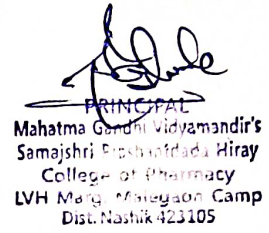 PRINCIPAL
Mahatma Gandhi Vidyamandir's
Samajshri Prashantdada Hiray
College of Pharmacy
LVH Marg, Malegaon Camp
Dist. Nashik 423105